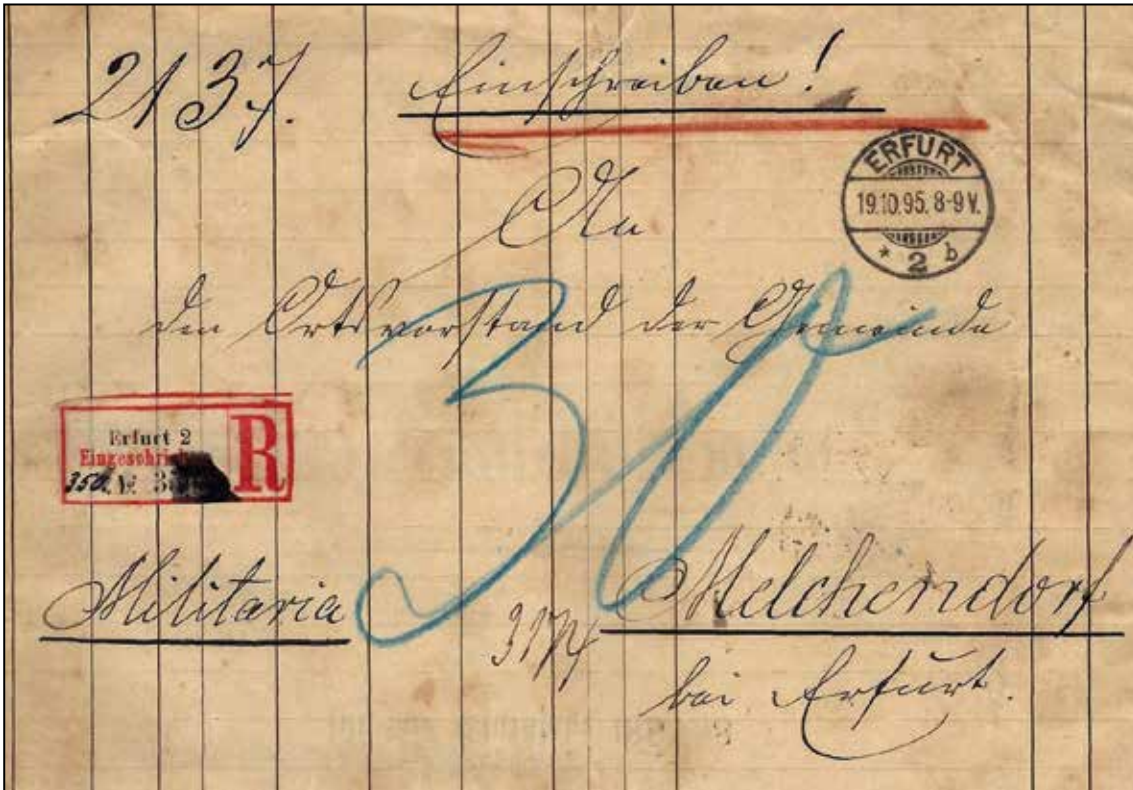 2137.
Einschreiben!
ERFURT
19.10.95. 8-9 V.
* 2 b
An
den Ortsvorstand der Gemeinde
30
Erfurt 2
R
350.
Militaria
Melchendorf
bei Erfurt.